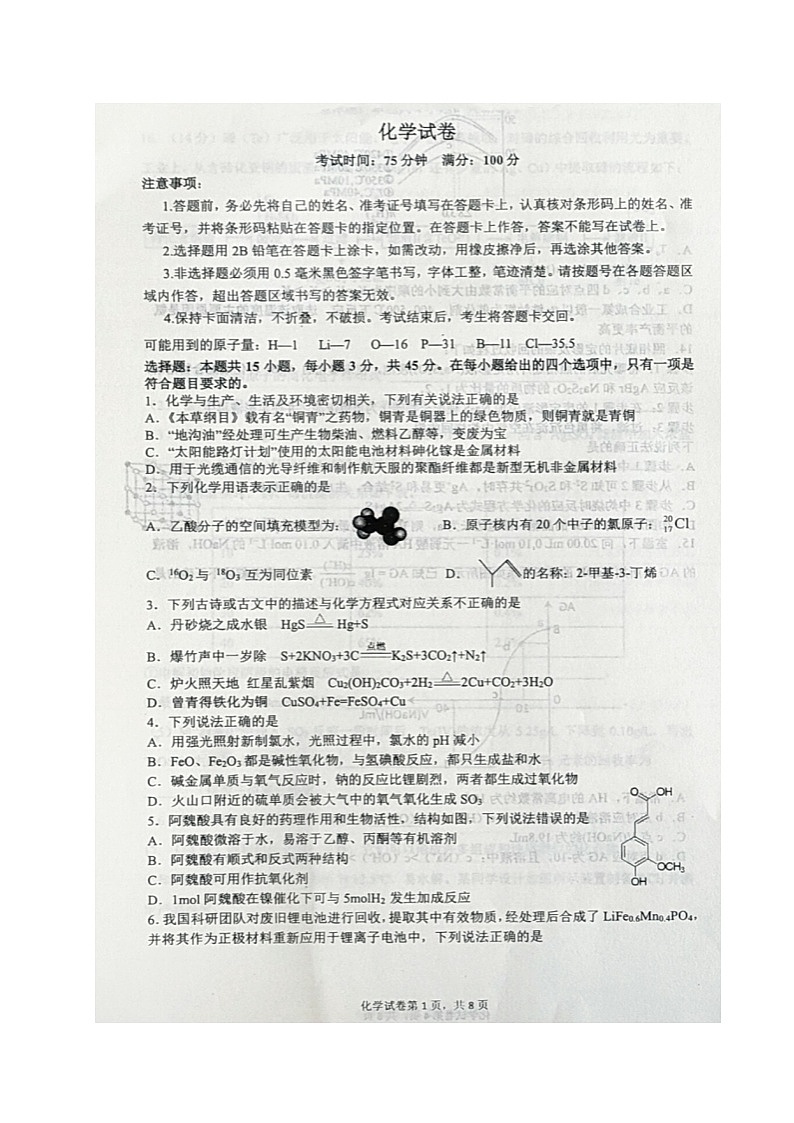 化学试卷
考试时间：75分钟 满分：100分
注意事项：
1.答题前，务必先将自己的姓名、准考证号填写在答题卡上，认真核对条形码上的姓名、准
考证号，并将条形码粘贴在答题卡的指定位置。在答题卡上作答，答案不能写在试卷上。
2.选择题用2B铅笔在答题卡上涂卡，如需改动，用橡皮擦净后，再选涂其他答案。
3.非选择题必须用0.5毫米黑色签字笔书写，字体工整，笔迹清楚。请按题号在各题答题区
域内作答，超出答题区域书写的答案无效。
4.保持卡面清洁，不折叠，不破损。考试结束后，考生将答题卡交回。
可能用到的原子量：H—1 Li—7 O—16 P—31 B—11 Cl—35.5
选择题：本题共15小题，每小题3分，共45分。在每小题给出的四个选项中，只有一项是
符合题目要求的。
1．化学与生产、生活及环境密切相关，下列有关说法正确的是
A．《本草纲目》载有名“铜青”之药物，铜青是铜器上的绿色物质，则铜青就是青铜
B．“地沟油”经处理可生产生物柴油、燃料乙醇等，变废为宝
C．“太阳能路灯计划”使用的太阳能电池材料砷化镓是金属材料
D．用于光缆通信的光导纤维和制作航天服的聚酯纤维都是新型无机非金属材料
2．下列化学用语表示正确的是
A．乙酸分子的空间填充模型为： B．原子核内有20个中子的氯原子：²⁰₁₇Cl
C．¹⁶O₂与¹⁸O₃互为同位素 D． 的名称：2-甲基-3-丁烯
3．下列古诗或古文中的描述与化学方程式对应关系不正确的是
A．丹砂烧之成水银 HgS△Hg+S
B．爆竹声中一岁除 S+2KNO3+3C点燃K2S+3CO2↑+N2↑
C．炉火照天地 红星乱紫烟 Cu2(OH)2CO3+2H2△2Cu+CO2+3H2O
D．曾青得铁化为铜 CuSO4+Fe=FeSO4+Cu
4．下列说法正确的是
A．用强光照射新制氯水，光照过程中，氯水的pH减小
B．FeO、Fe2O3都是碱性氧化物，与氢碘酸反应，都只生成盐和水
C．碱金属单质与氧气反应时，钠的反应比锂剧烈，两者都生成过氧化物
D．火山口附近的硫单质会被大气中的氧气氧化生成SO3
5．阿魏酸具有良好的药理作用和生物活性，结构如图，下列说法错误的是
A．阿魏酸微溶于水，易溶于乙醇、丙酮等有机溶剂
B．阿魏酸有顺式和反式两种结构
C．阿魏酸可用作抗氧化剂
D．1mol阿魏酸在镍催化下可与5molH2发生加成反应
O OH
OCH3
OH
6．我国科研团队对废旧锂电池进行回收，提取其中有效物质，经处理后合成了LiFe0.6Mn0.4PO4，
并将其作为正极材料重新应用于锂离子电池中，下列说法正确的是
化学试卷第1页，共8页